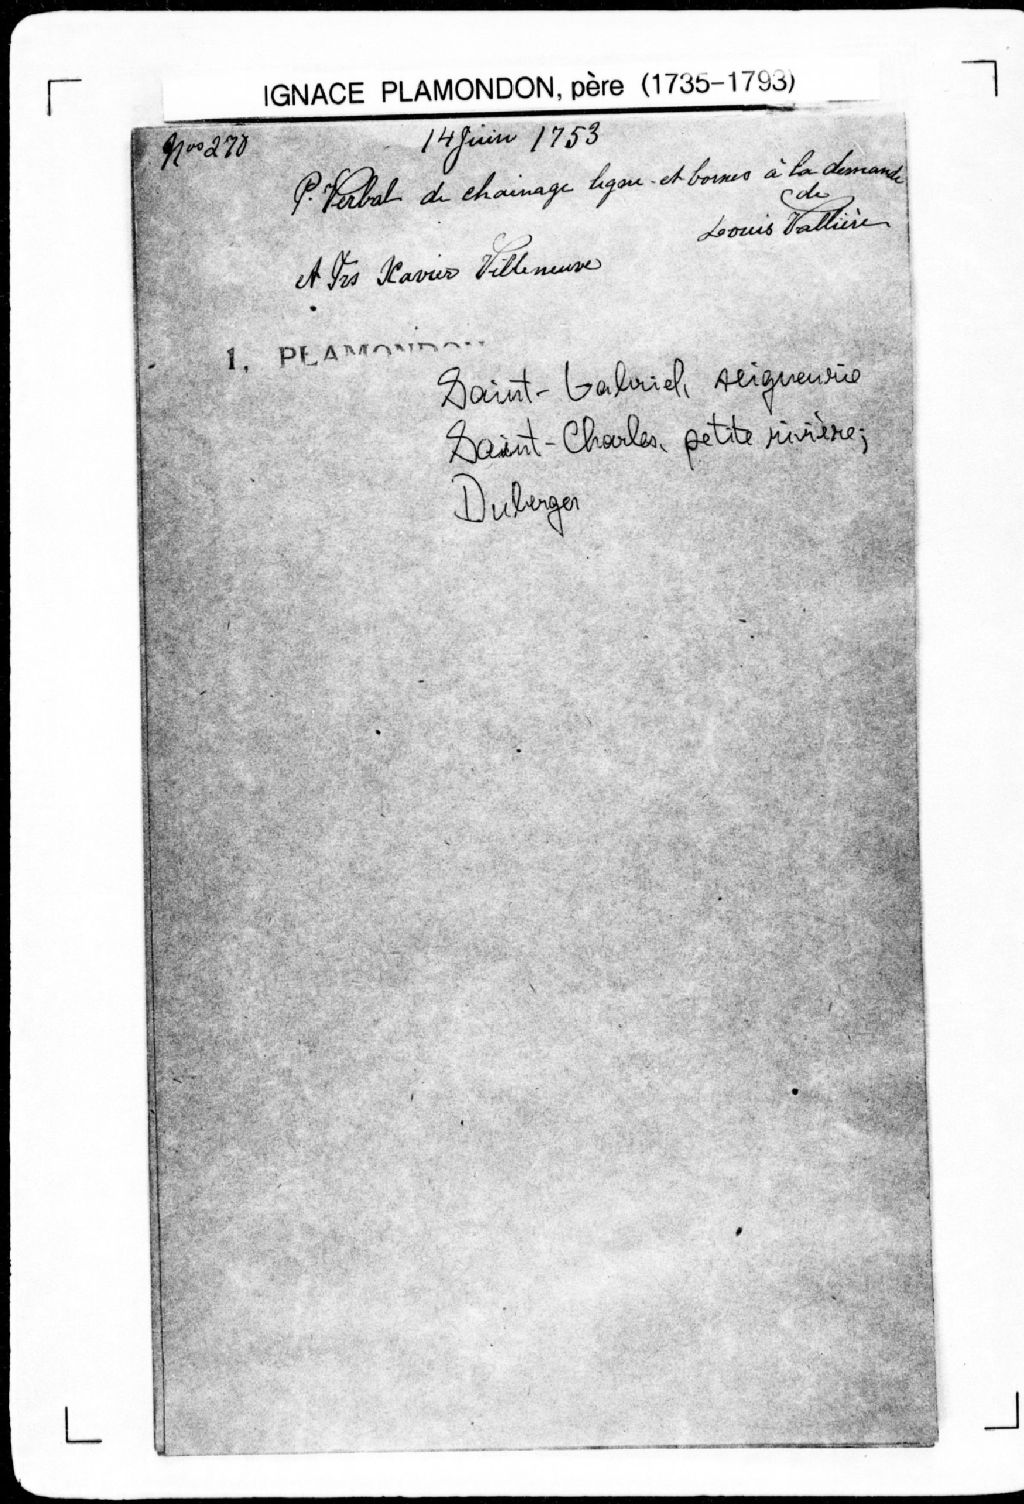 IGNACE PLAMONDON, père (1735-1793)
Nos 270 14 Juin 1753
P. Verbal de chainage ligne et bornes à la demande
de
Louis Vallière
et Frs Xavier Villeneuve
1. PLAMONDON
Saint-Gabriel, seigneurie
Saint-Charles, petite rivière;
Duberger